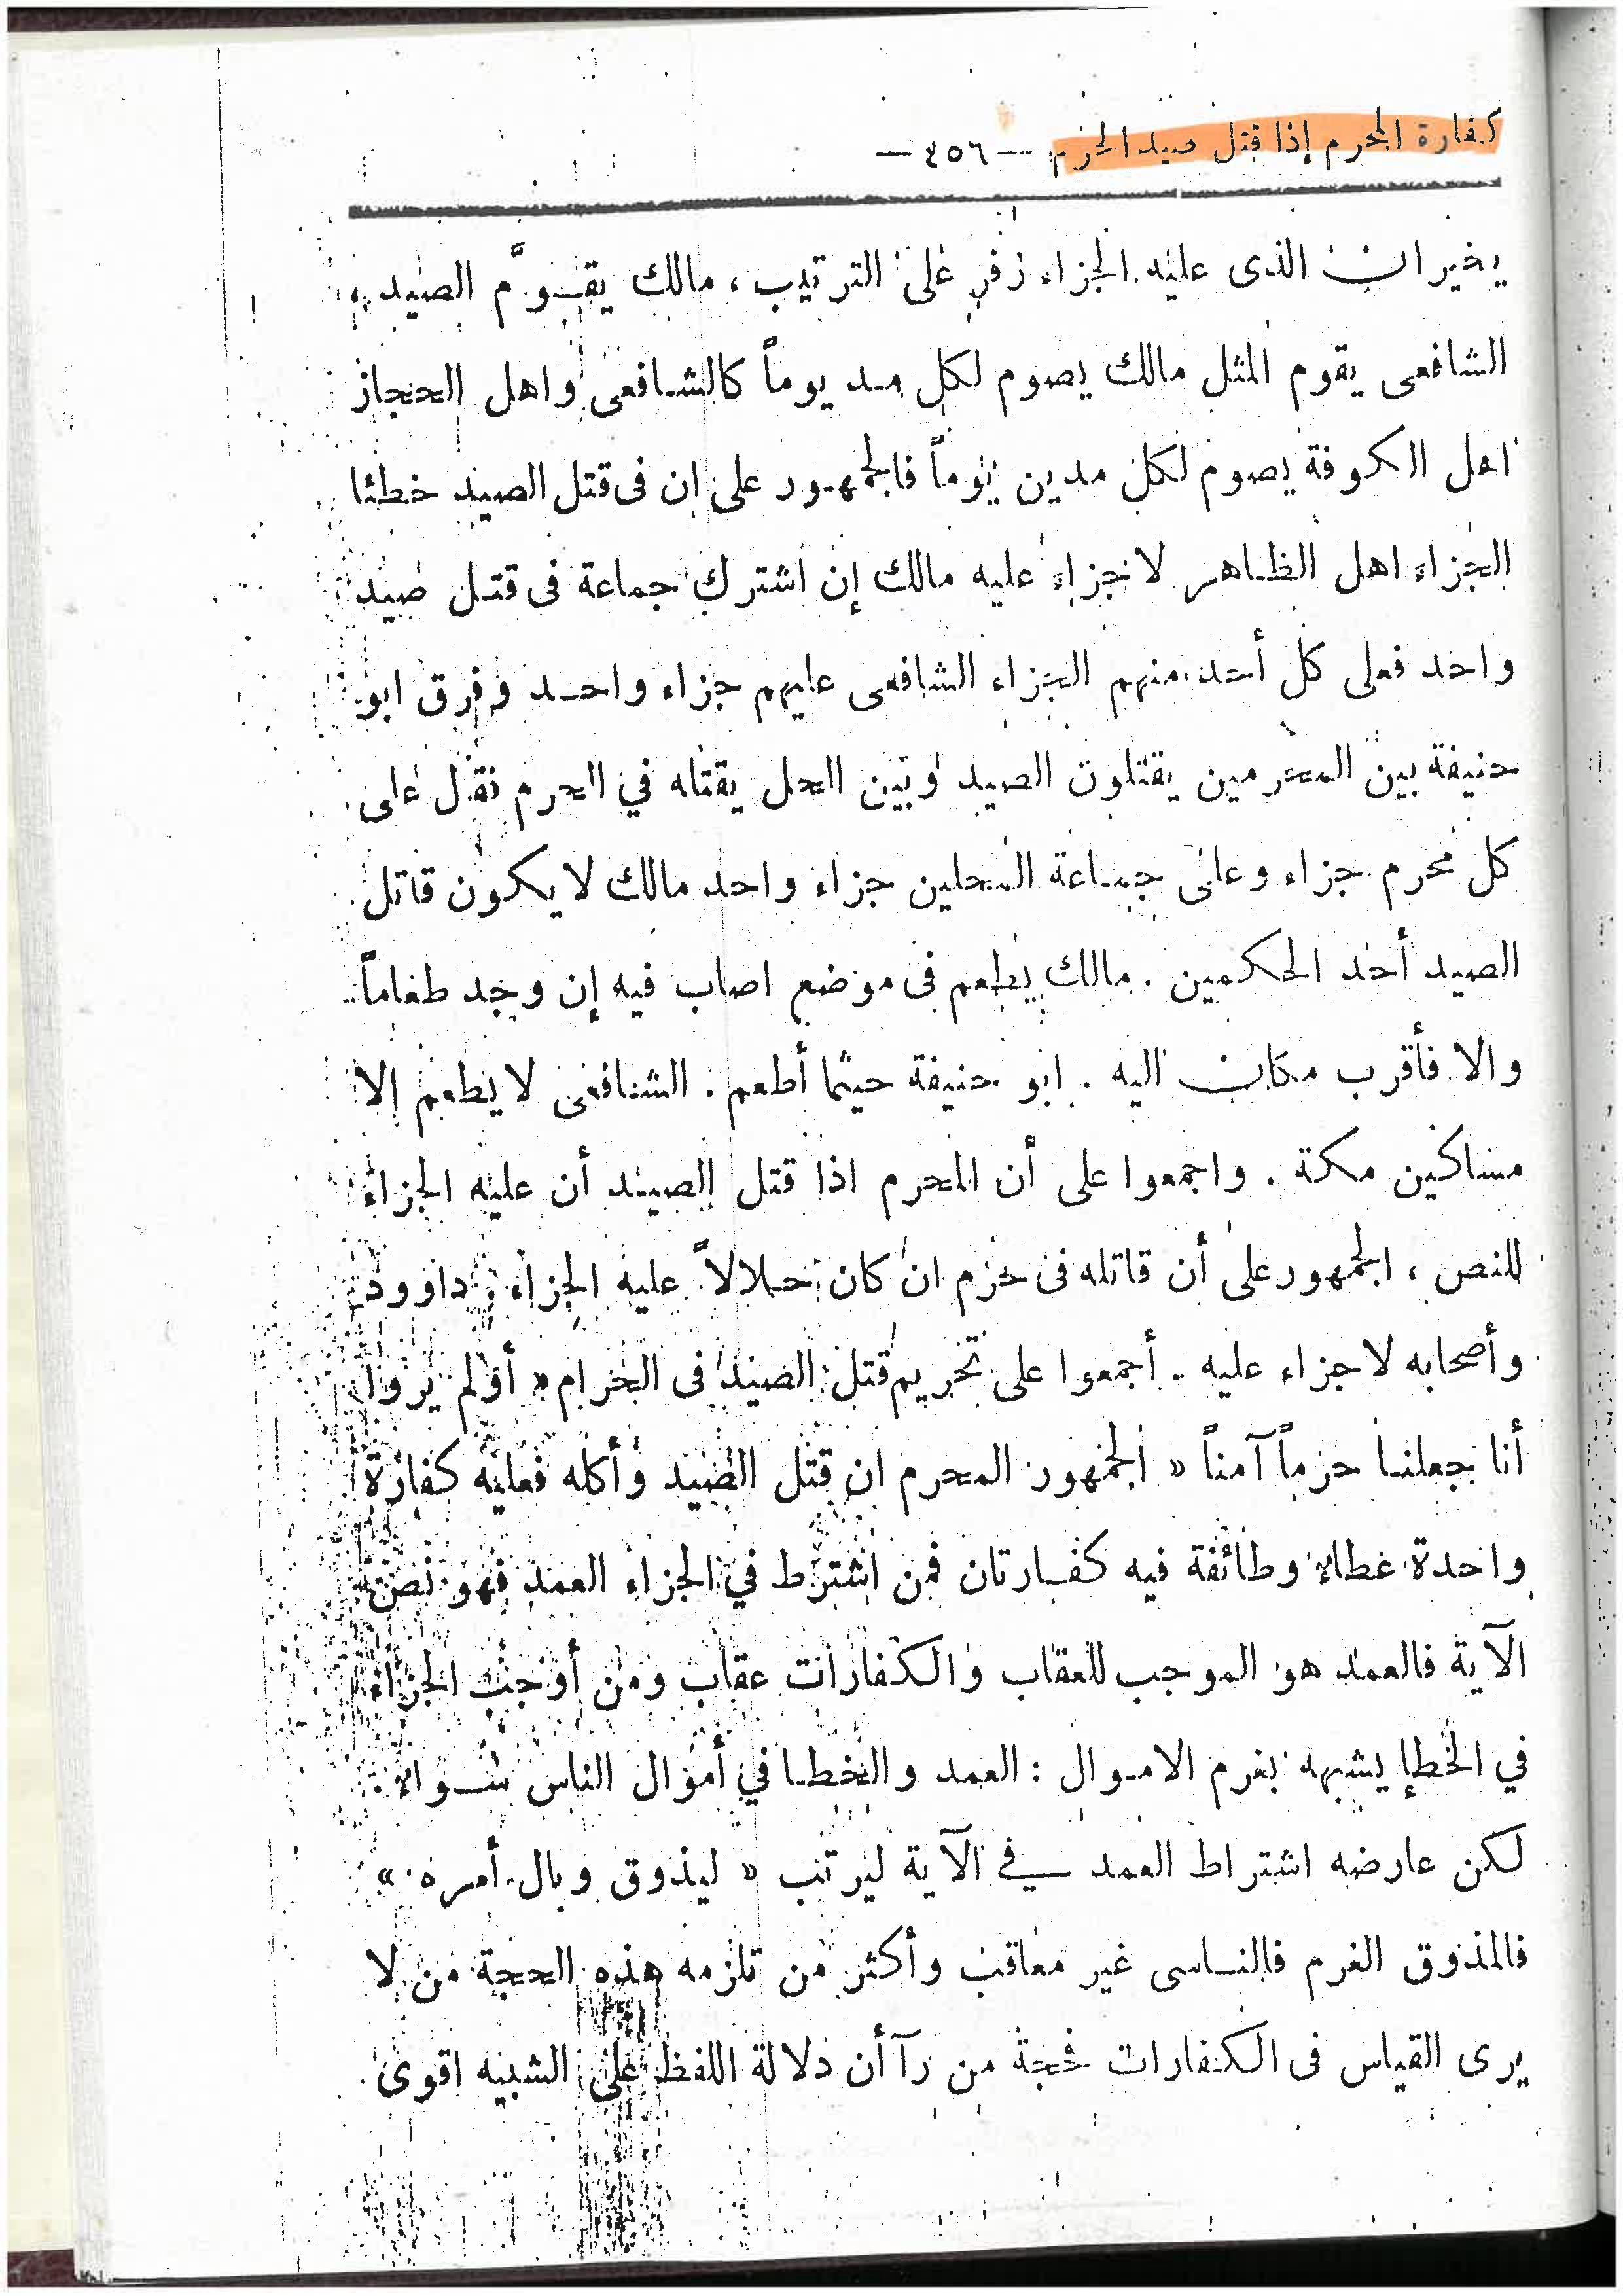 كفارة المحرم إذا قتل صيد الحرم — ٤٥٦ —
يخيران الذى عليه الجزاء زفر على الترتيب ، مالك يقوَّم الصيد ،
الشافعى يقوم المثل مالك يصوم لكل مد يوماً كالشافعى واهل الحجاز
اهل الكوفة يصوم لكل مدين يوماً فالجمهور على ان فى قتل الصيد خطئا
الجزاء اهل الظاهر لا جزاء عليه مالك إن اشترك جماعة فى قتل صيد
واحد فعلى كل أحد منهم الجزاء الشافعى عليهم جزاء واحد وفرق ابو
حنيفة بين المحرمين يقتلون الصيد وبين الحل يقتله في الحرم فقل على
كل محرم جزاء وعلى جماعة المحلين جزاء واحد مالك لا يكون قاتل
الصيد أحد الحكمين . مالك يطعم فى موضع اصاب فيه إن وجد طعاماً
والا فأقرب مكان اليه . ابو حنيفة حيثما أطعم . الشافعى لا يطعم إلا
مساكين مكة . واجمعوا على أن المحرم اذا قتل الصيد أن عليه الجزاء
للنص ، الجمهور على أن قاتله فى حرم ان كان حلالاً عليه الجزاء ، داوود
وأصحابه لا جزاء عليه . أجمعوا على تحريم قتل الصيد فى الحرام « أولم يروا
أنا جعلنا حرماً آمناً « الجمهور المحرم ان قتل الصيد وأكله فعليه كفارة
واحدة عطاء وطائفة فيه كفارتان فمن اشترط في الجزاء العمد فهو نص
الآية فالعمد هو الموجب للعقاب والكفارات عقاب ومن أوجب الجزاء
في الخطإ يشبهه بغرم الاموال : العمد والخطا في أموال الناس سواء .
لكن عارضه اشتراط العمد في الآية ليرتب « ليذوق وبال أمره »
فالمذوق الغرم فالناسى غير معاقب وأكثر من تلزمه هذه الحجة من لا
يرى القياس فى الكفارات فحجة من رآ أن دلالة اللفظ على الشبيه اقوى